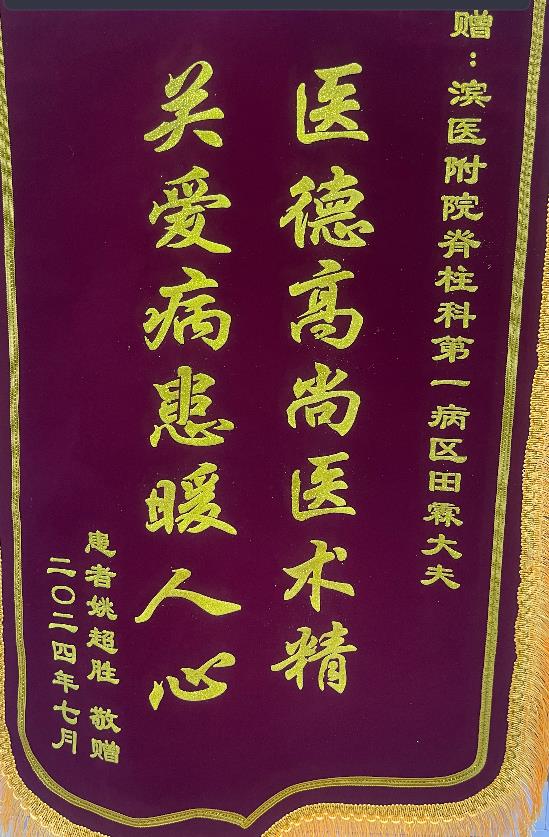 赠：滨医附院脊柱科第一病区田霖大夫
医德高尚医术精
关爱病患暖人心
患者姚超胜 敬赠
二〇二四年七月